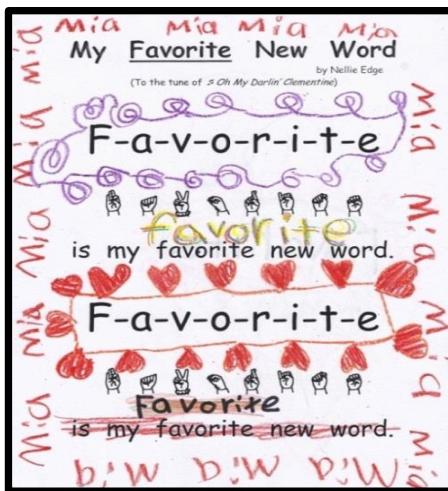 Mia Mia Mia Mia
My Favorite New Word
by Nellie Edge
(To the tune of ♫ Oh My Darlin' Clementine)
F-a-v-o-r-i-t-e
favorite
is my favorite new word.
F-a-v-o-r-i-t-e
Favorite
is my favorite new word.
Mia
Mia
Mia
Mia
Mia
Mia
Mia
Mia
Mia
Mia Mia Mia Mia